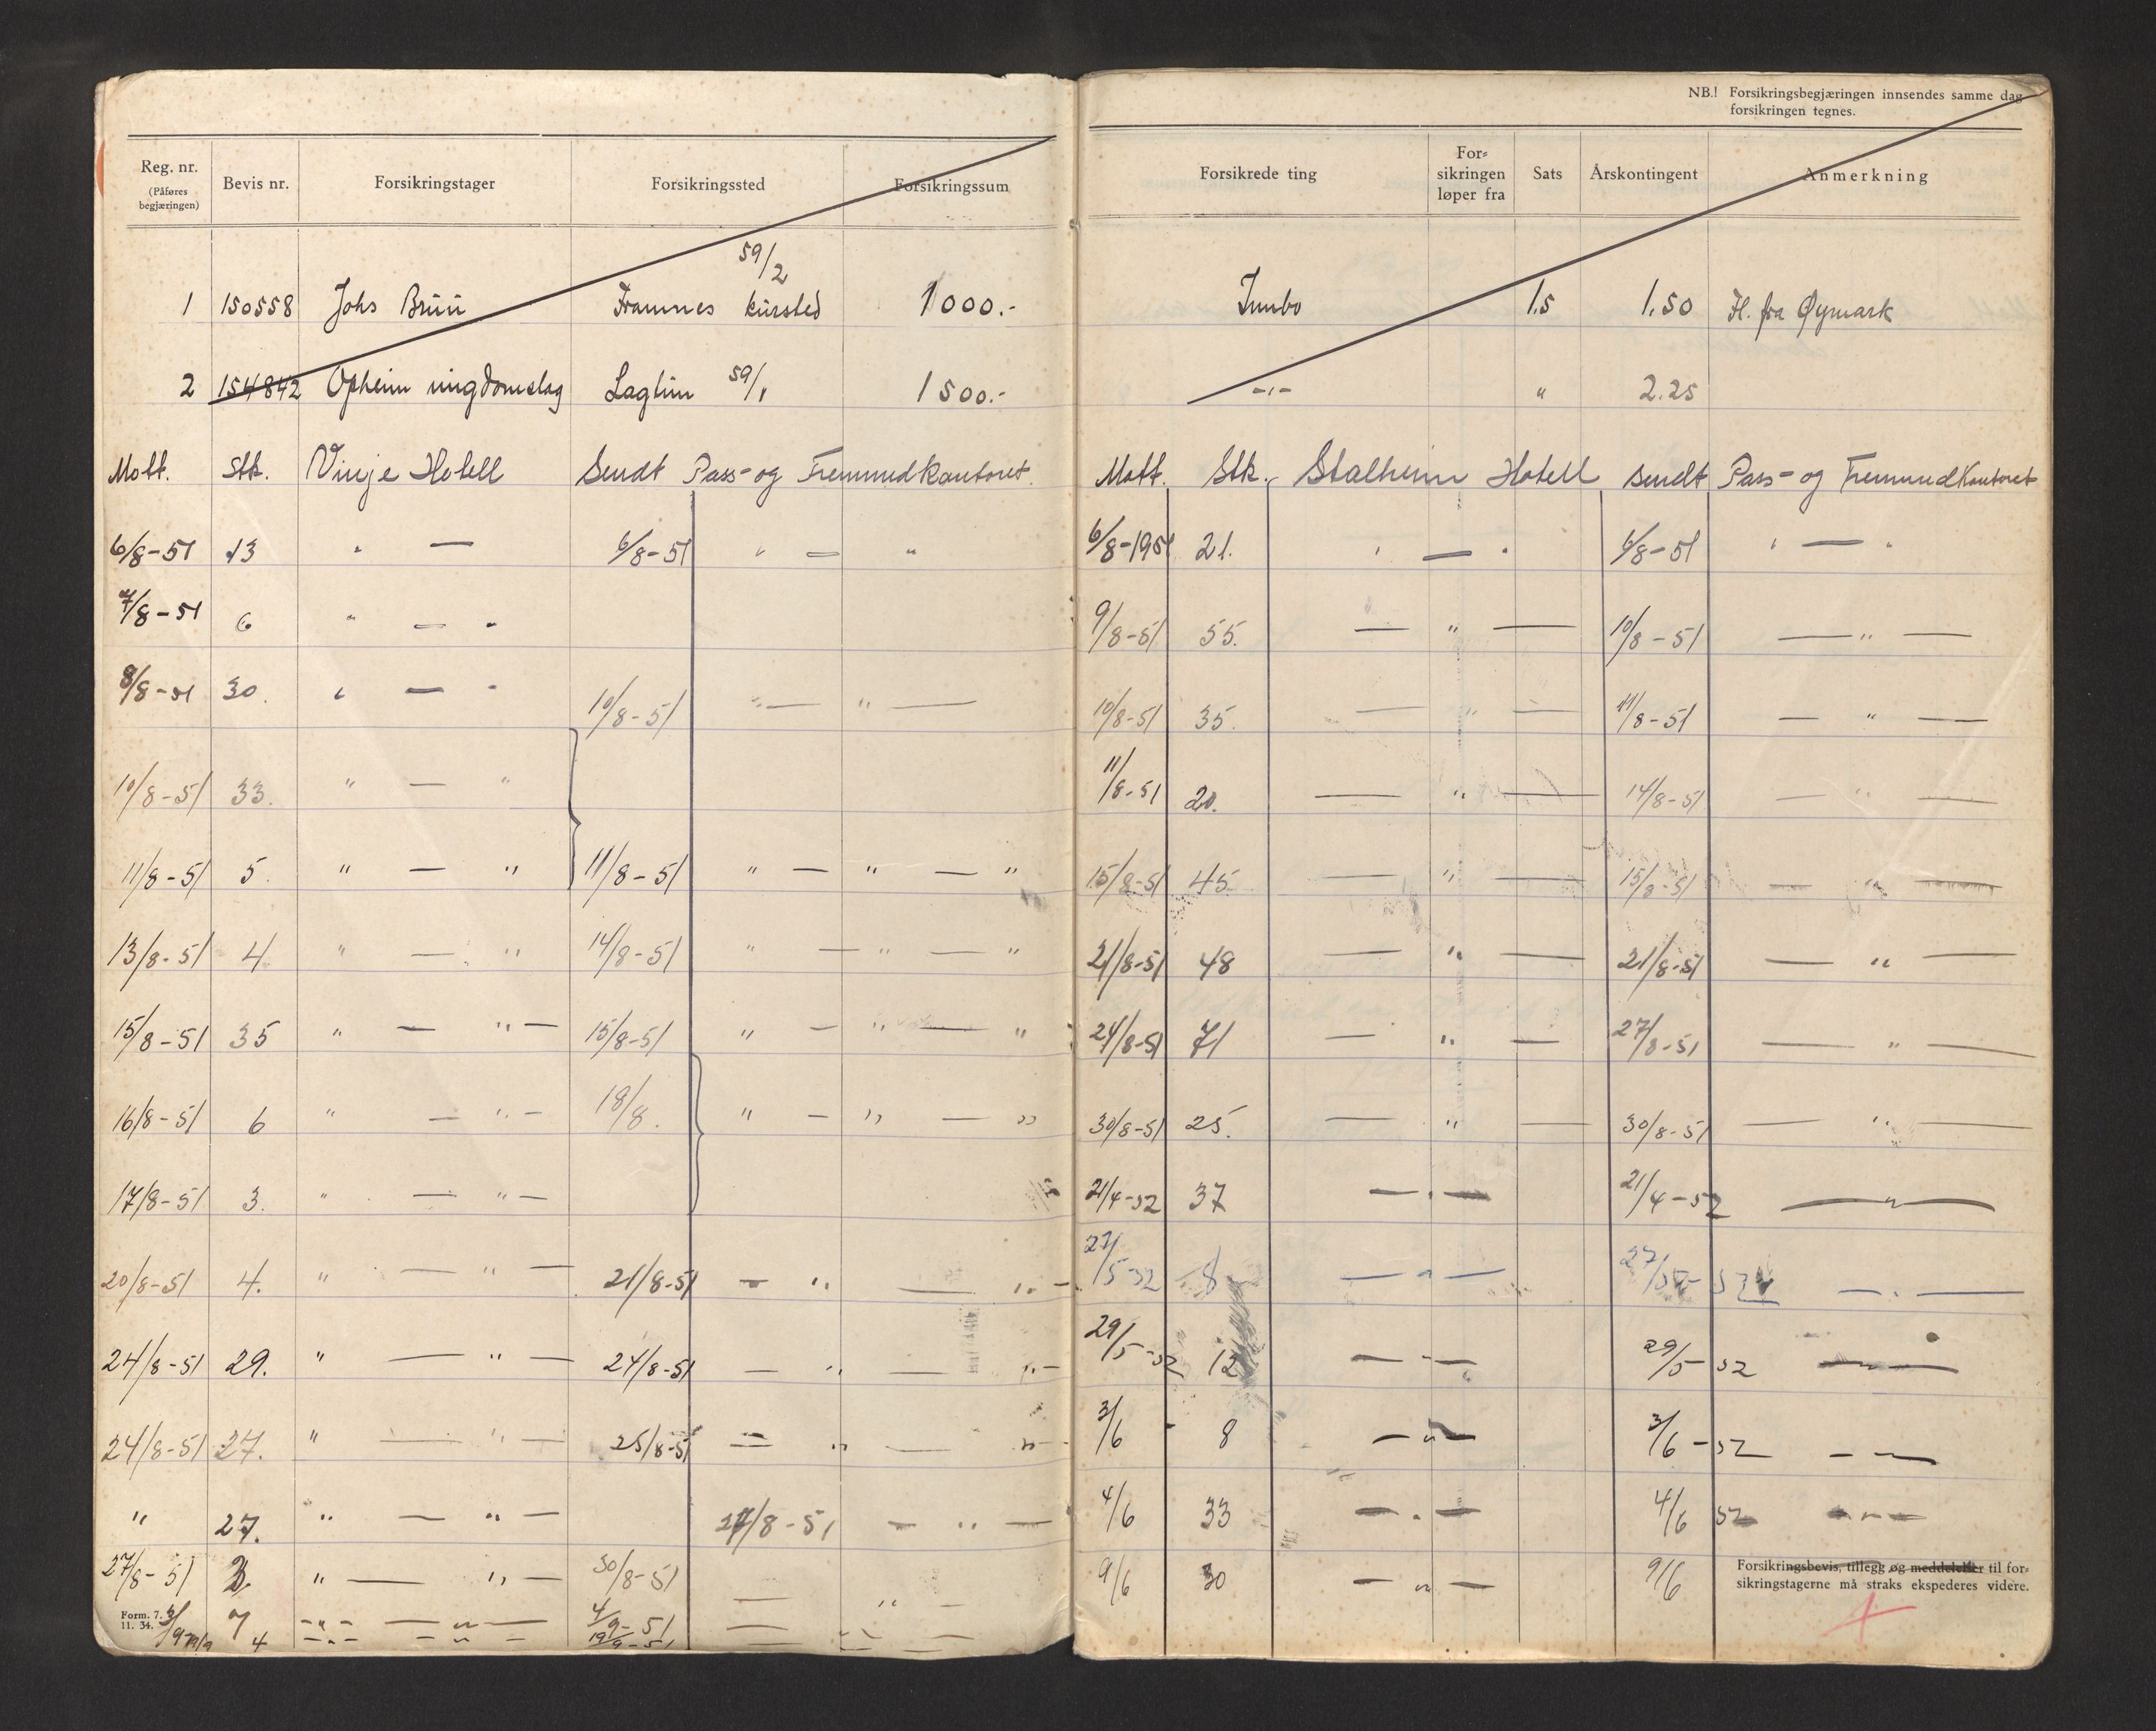 Reg. nr. (Påføres begjæringen) Bevis nr. Forsikringstager Forsikringssted Forsikringssum
59/2
1 150558 Johs Brun Framnes kursted 1000.-
2 154842 Opheim ungdomslag Laglim 59/1 1500.-
Mott. Stk. Vinje Hotell Sendt Pass- og Fremmedkontoret.
6/8-51 13 " — 6/8-51 " — "
7/8-51 6 " — "
8/8-51 30. " — " 10/8-51 " — " —
10/8-51 33. " — "
11/8-51 5. " — " 11/8-51 " — " — "
13/8-51 4. " — " 14/8-51 " — " — "
15/8-51 35 " — " — 15/8-51 " — " — "
16/8-51 6 " — " — 18/8. " — " — "
17/8-51 3. " — " —
20/8-51 4. " — " — 21/8-51 — " — " —
24/8-51 29. " — " — 24/8-51 — " — " —
24/8-51 27. " — " — 25/8-51 — " — " —
" 27. " — " — 27/8-51 — " —
27/8-51 " — " — 30/8-51 — " —
Form. 7.
11. 34.
7 — " — — " — 4/9-51 —
4 — " — — " — 19/9-51 — " —
NB.! Forsikringsbegjæringen innsendes samme dag
forsikringen tegnes.
Forsikrede ting Forsikringen løper fra Sats Årskontingent Anmerkning
Innbo 1.5 1.50 Fl. fra Øymark
—"— " 2.25
Mott. Stk. Stalheim Hotell sendt Pass- og Fremmedkontoret
6/8-1951 21. " — " 6/8-51 " — "
9/8-51 55. — " — 10/8-51 — " —
10/8-51 35. — " — 11/8-51 — " —
11/8-51 20. — " — 14/8-51 — " —
15/8-51 45. — " — 15/8-51 — " —
21/8-51 48 — " — 21/8-51 — " —
24/8-51 71 — " — 27/8-51 — " —
30/8-51 25. — " — 30/8-51 — " —
21/4-52 37 — " — 21/4-52 — " —
27/5-52 8 — " — 27/5-52 — " —
29/5-52 12 — " — 29/5-52 — " —
3/6 - 8 — " — 3/6-52 — " —
4/6 33 — " — 4/6 52 — " —
9/6 30 — " — 9/6
Forsikringsbevis, tillegg og meddelelser til for=
sikringstagerne må straks ekspederes videre.